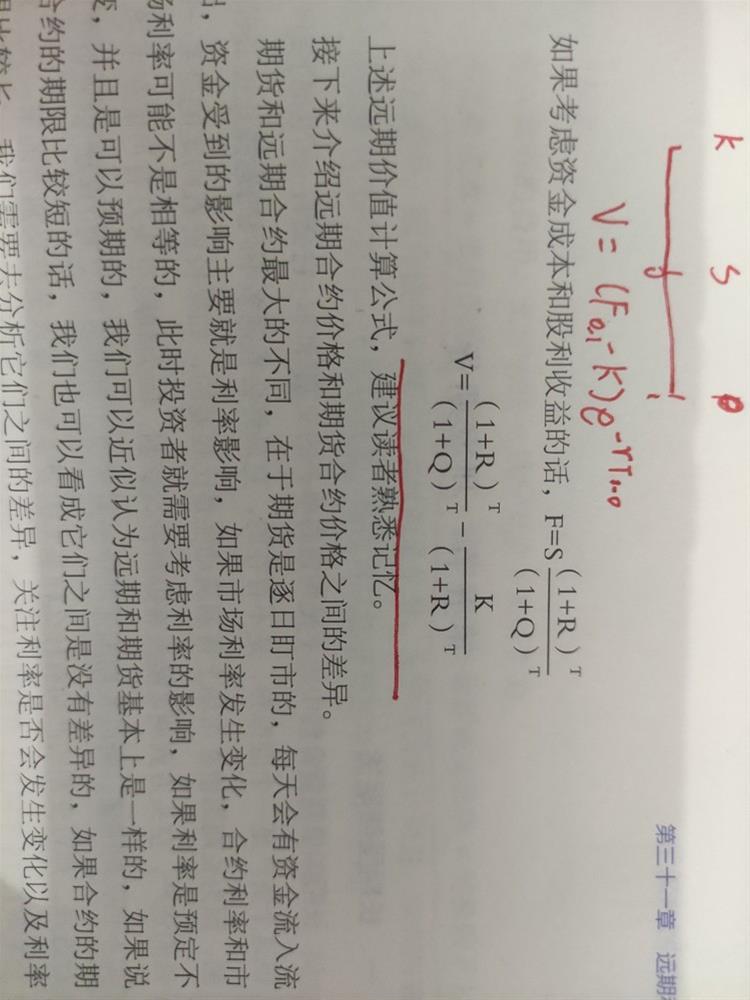 第三十一章 远期
K S
V=(F₀,₁-K)e
如果考虑资金成本和股利收益的话，F=S(1+R)ᵀ/(1+Q)ᵀ
V=(1+R)ᵀ/(1+Q)ᵀ-K/(1+R)ᵀ
上述远期价值计算公式，建议读者熟悉记忆。
接下来介绍远期合约价格和期货合约价格之间的差异。
期货和远期合约最大的不同，在于期货是逐日盯市的，每天会有资金流入流
出，资金受到的影响主要就是利率影响，如果市场利率发生变化，合约利率和市
场利率可能不是相等的，此时投资者就需要考虑利率的影响，如果利率是预定不
变，并且是可以预期的，我们可以近似认为远期和期货基本上是一样的，如果说
合约的期限比较短的话，我们也可以看成它们之间是没有差异的，如果合约的期
限比较长，我们需要去分析它们之间的差异，关注利率是否会发生变化以及利率